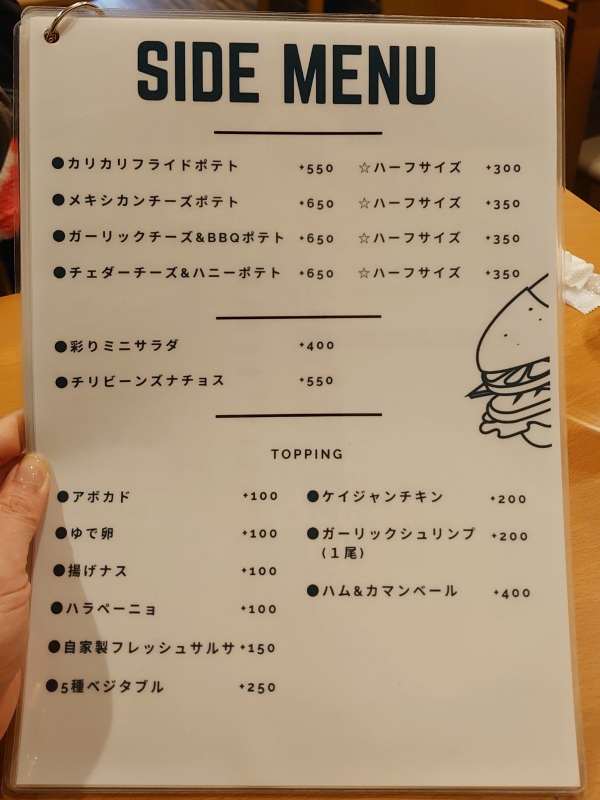 SIDE MENU
●カリカリフライドポテト +550 ☆ハーフサイズ +300
●メキシカンチーズポテト +650 ☆ハーフサイズ +350
●ガーリックチーズ&BBQポテト +650 ☆ハーフサイズ +350
●チェダーチーズ&ハニーポテト +650 ☆ハーフサイズ +350
●彩りミニサラダ +400
●チリビーンズナチョス +550
TOPPING
●アボカド +100
●ゆで卵 +100
●揚げナス +100
●ハラペーニョ +100
●自家製フレッシュサルサ +150
●5種ベジタブル +250
●ケイジャンチキン +200
●ガーリックシュリンプ +200
(1尾)
●ハム&カマンベール +400